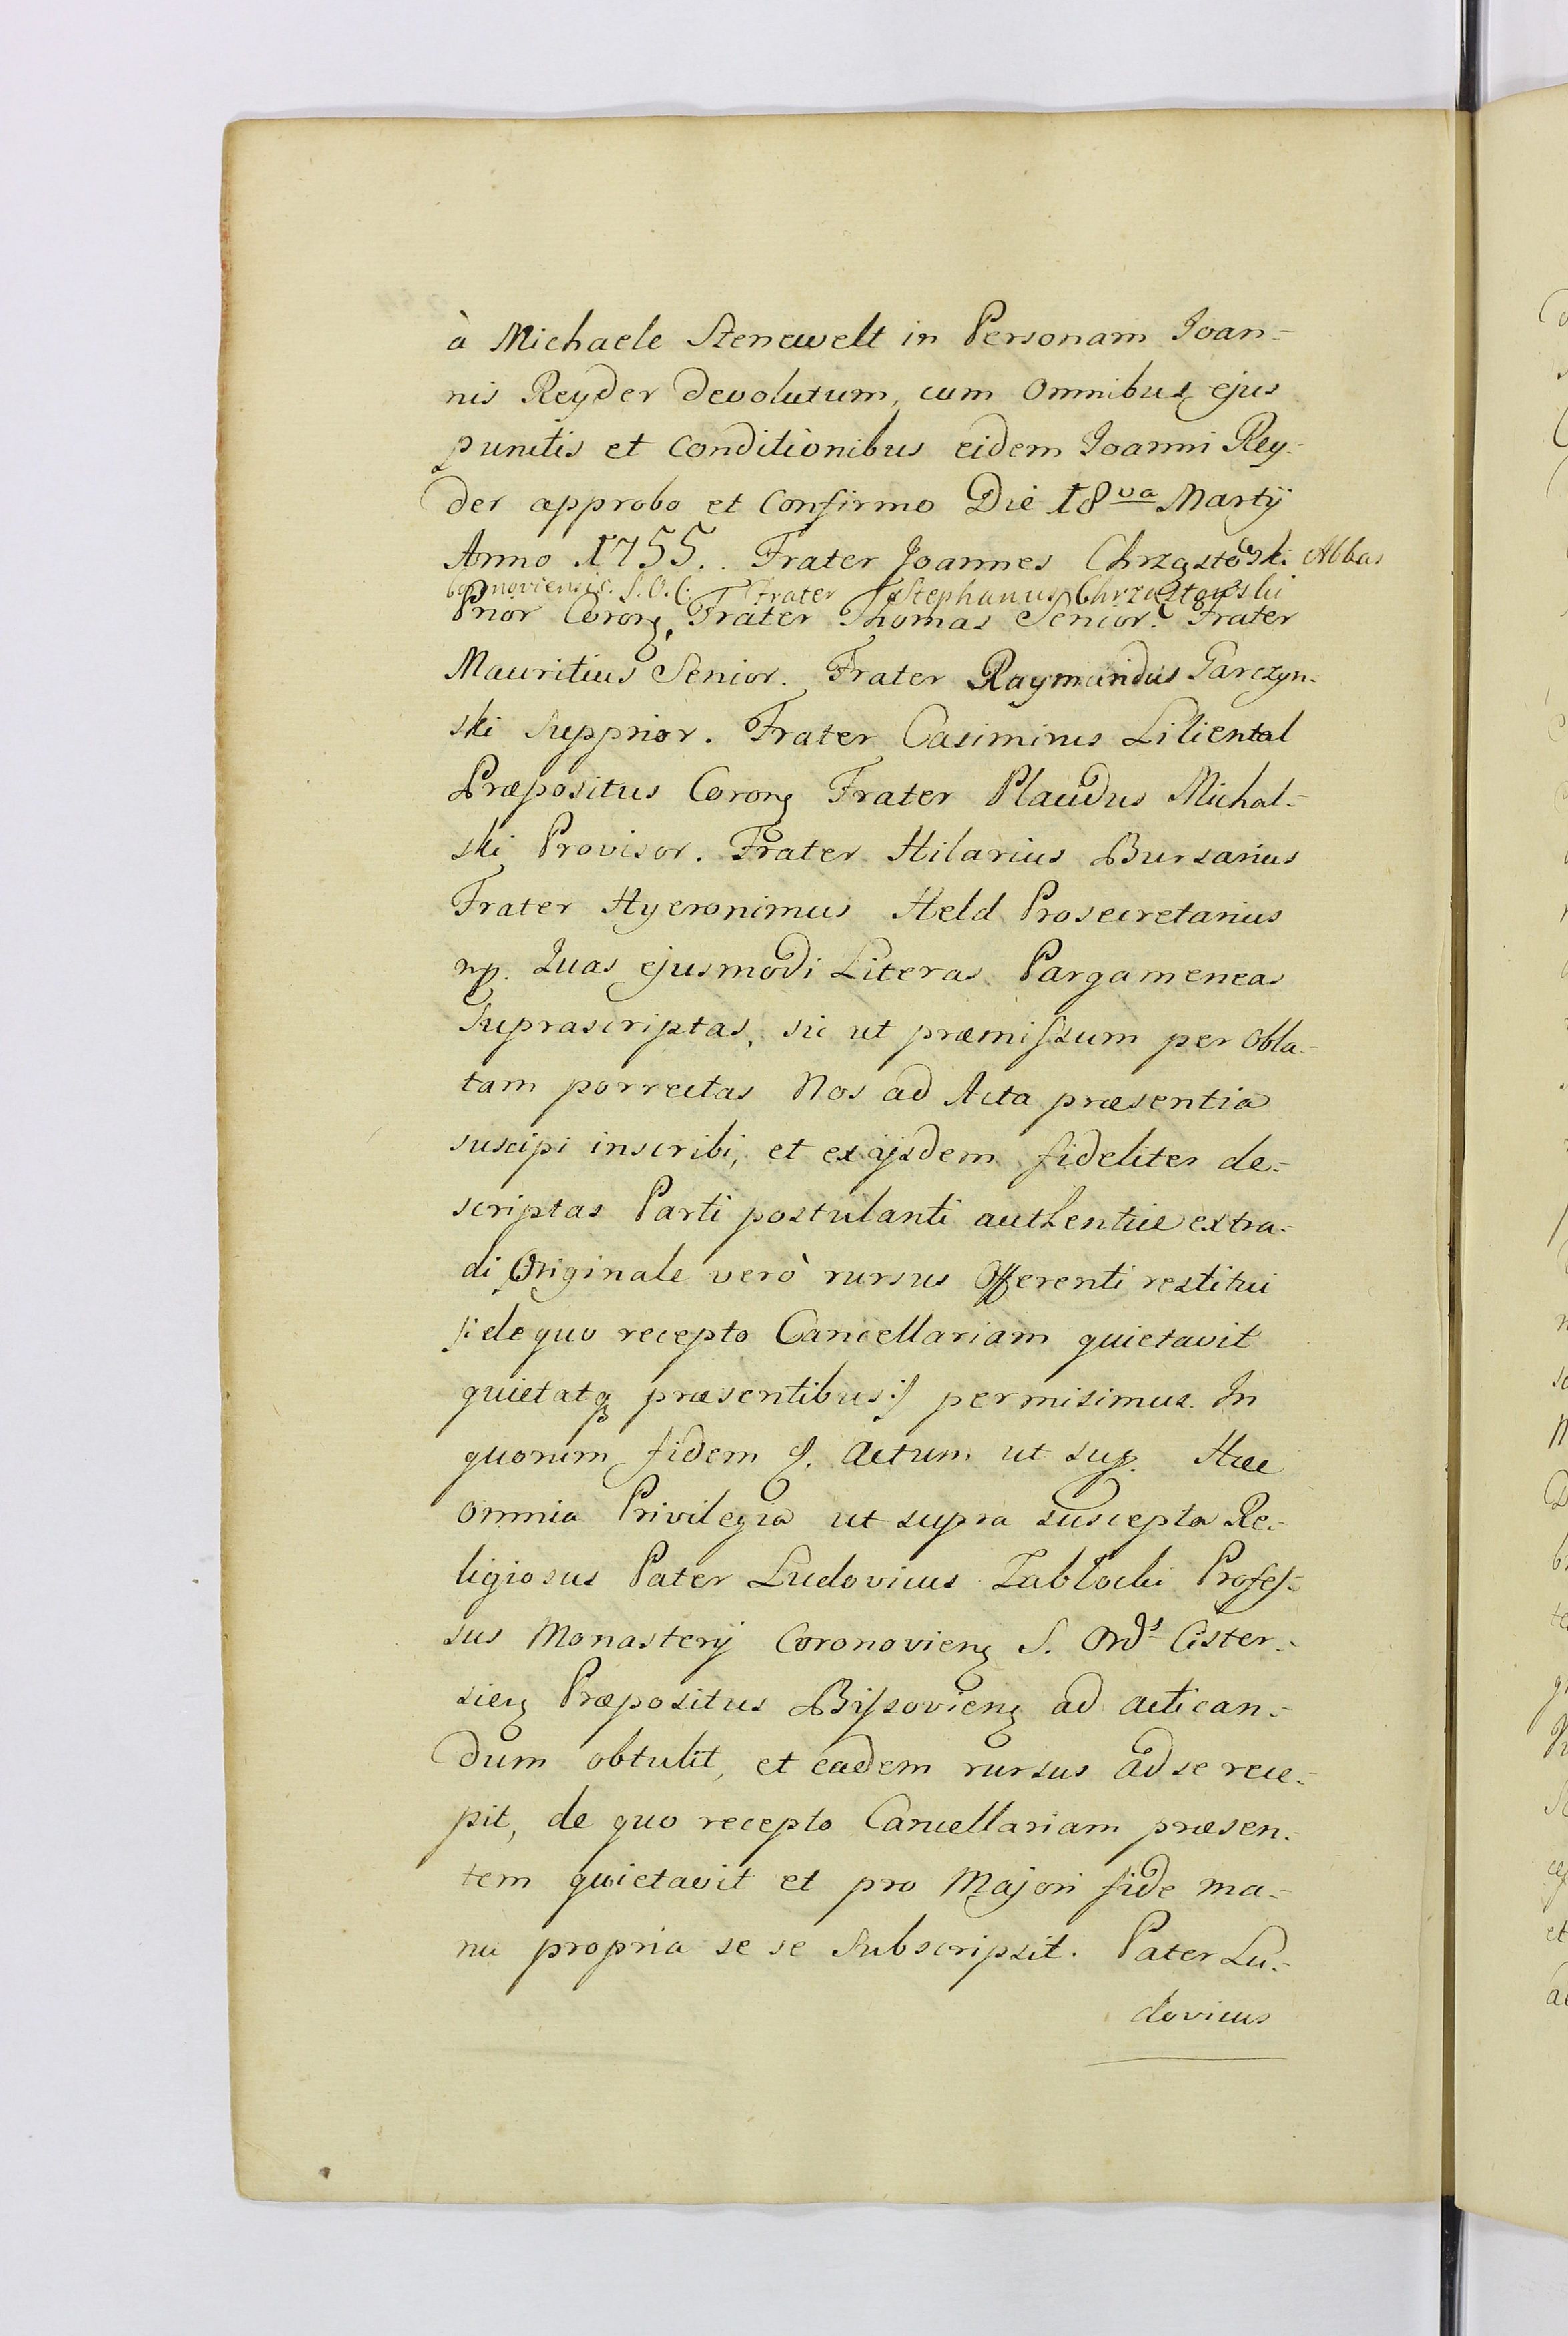 à Michaele Stenewelt in Personam Joan-
nis Reyder devolutum, cum omnibus ejus
punctis et conditionibus eidem Joanni Rey-
der approbo et Confirmo Die 18va Martÿ
Anno 1755. Frater Joannes Chrząstowski Abbas
Coronoviensis. S. O. C. Frater Stephanus Chrząstowski
Prior Coronȝ, Frater Thomas Senior. Frater
Mauritius Senior. Frater Raymundus Garczyn-
ski Supprior. Frater Casimirus Liliental
Præpositus Coronȝ Frater Placidus Michal-
ski Provisor. Frater Hilarius Bursarius
Frater Hyeronimus Held Prosecretarius
mp. Quas ejusmodi Literas Pargameneas
Suprascriptas, sic ut præmissum per Obla-
tam porrectas Nos ad Acta præsentia
suscipi inscribi, et ex ijsdem fideliter de-
scriptas Parti postulanti authentice extra-
di Originale verò rursus Offerenti restitui
/: de quo recepto Cancellariam quietavit
quietatq præsentibus :/ permisimus. In
quorum fidem &. Actum ut sup. Hæc
omnia Privilegia ut supra suscepta Re-
ligiosus Pater Ludovicus Zabłocki Profes-
sus Monasterÿ Coronovienȝ S. Ords Cister-
cienȝ Præpositus Byssovienȝ ad actican-
dum obtulit, et eadem rursus ad se rece-
pit, de quo recepto Cancellariam præsen-
tem quietavit et pro Majori fide ma-
nu propria se se Subscripsit. Pater Lu-
dovicus